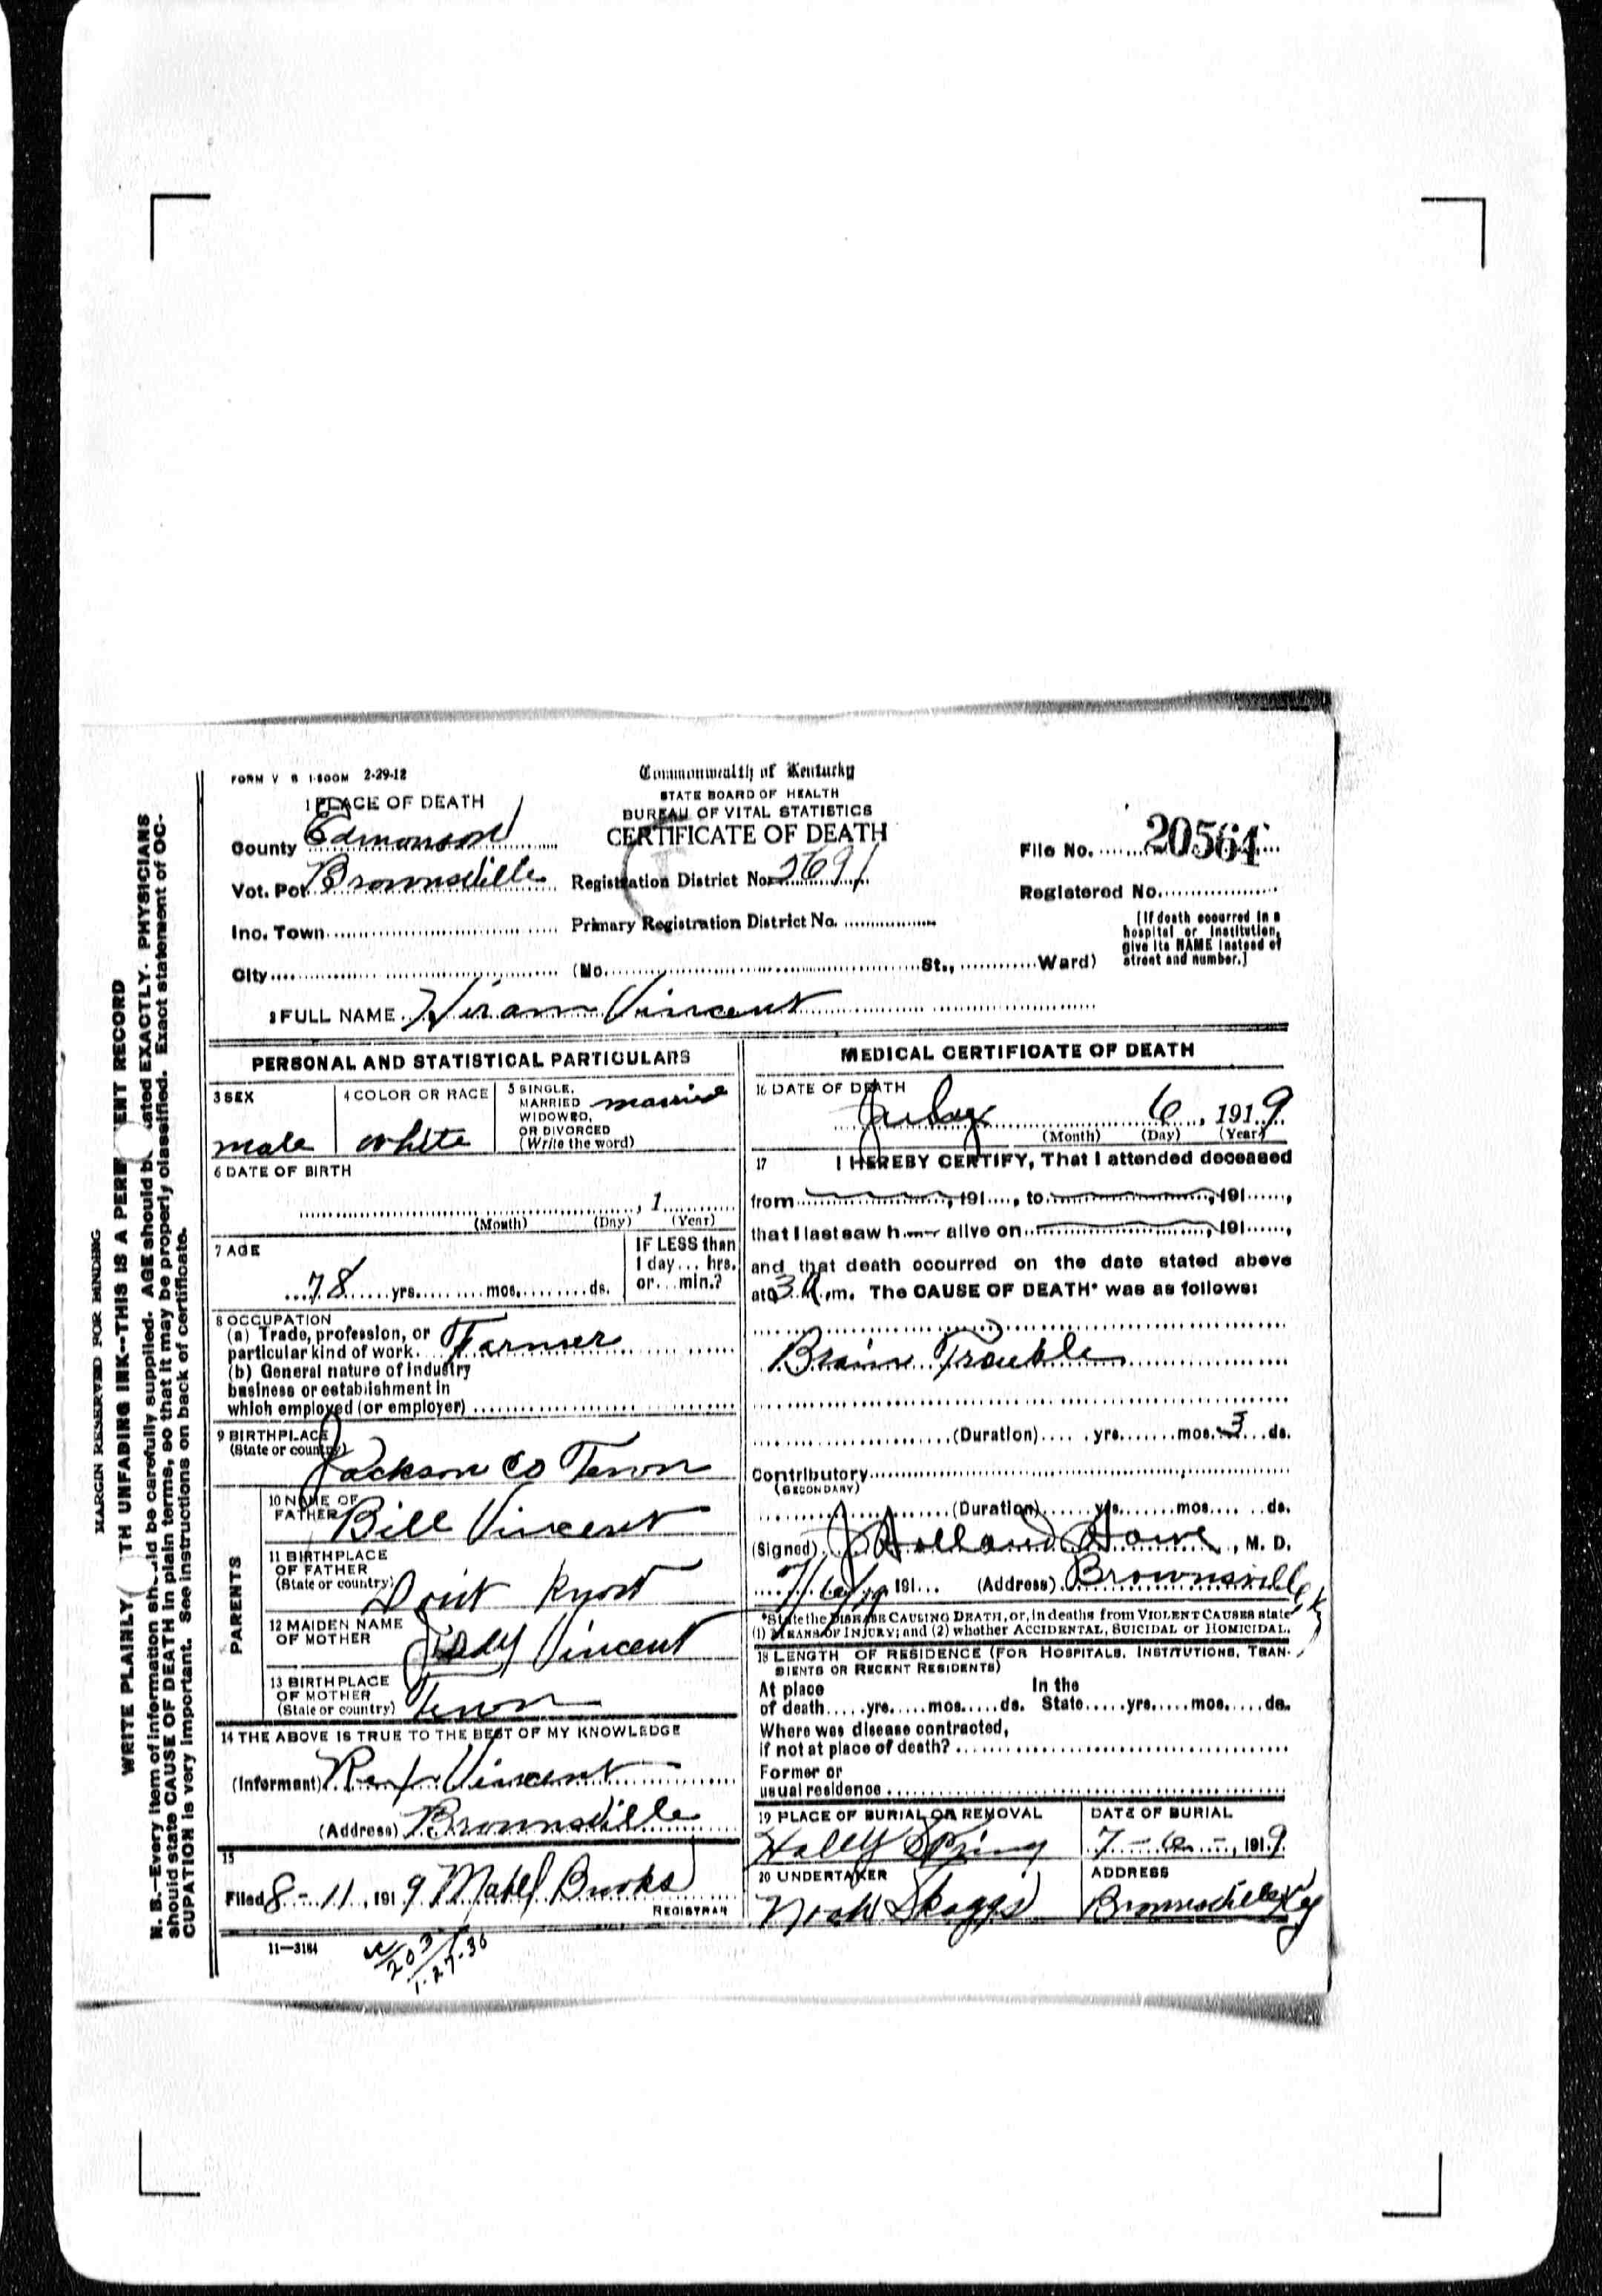 FORM V S 1-500M 2-29-12
Commonwealth of Kentucky
STATE BOARD OF HEALTH
BUREAU OF VITAL STATISTICS
CERTIFICATE OF DEATH
1 PLACE OF DEATH
County Edmonson
Vot. Pct. Brownsville
Registration District No. 2691
File No. 20564
Registered No.
Inc. Town
Primary Registration District No.
[If death occurred in a
hospital or institution,
give its NAME instead of
street and number.]
City (No. St., Ward)
2 FULL NAME Hiram Vincent
PERSONAL AND STATISTICAL PARTICULARS
3 SEX
male
4 COLOR OR RACE
white
5 SINGLE,
MARRIED
WIDOWED,
OR DIVORCED
(Write the word)
married
6 DATE OF BIRTH
, 1
(Month) (Day) (Year)
7 AGE
78 yrs. mos. ds.
IF LESS than
1 day... hrs.
or... min.?
8 OCCUPATION
(a) Trade, profession, or
particular kind of work. Farmer
(b) General nature of industry
business or establishment in
which employed (or employer)
9 BIRTHPLACE
(State or country)
Jackson Co Tenn
PARENTS
10 NAME OF
FATHER Bill Vincent
11 BIRTHPLACE
OF FATHER
(State or country) Dont Know
12 MAIDEN NAME
OF MOTHER Vincent
13 BIRTHPLACE
OF MOTHER
(State or country) Tenn
14 THE ABOVE IS TRUE TO THE BEST OF MY KNOWLEDGE
(Informant) Vincent
(Address) Brownsville
15
Filed 8-11, 1919 Mabel Brooks
REGISTRAR
11-3184
1-27-36
MEDICAL CERTIFICATE OF DEATH
16 DATE OF DEATH
July 6, 1919
(Month) (Day) (Year)
17 I HEREBY CERTIFY, That I attended deceased
from , 191...., to , 191......,
that I last saw h alive on , 191......,
and that death occurred on the date stated above
at 3 .m. The CAUSE OF DEATH* was as follows:
Brain Trouble
(Duration) yrs. mos. 3 ds.
Contributory
(SECONDARY)
(Duration) yrs. mos. ds.
(Signed) J Holland Howe, M. D.
7/6/19 191... (Address) Brownsville Ky
*State the DISEASE CAUSING DEATH, or, in deaths from VIOLENT CAUSES state
(1) MEANS OF INJURY; and (2) whether ACCIDENTAL, SUICIDAL or HOMICIDAL.
18 LENGTH OF RESIDENCE (FOR HOSPITALS, INSTITUTIONS, TRAN-
SIENTS OR RECENT RESIDENTS)
At place In the
of death.....yrs.....mos.....ds. State.....yrs.....mos.....ds.
Where was disease contracted,
if not at place of death?
Former or
usual residence
19 PLACE OF BURIAL OR REMOVAL
Holly Spring
DATE OF BURIAL
7-6-, 1919
20 UNDERTAKER
Noah Skaggs
ADDRESS
Brownsville Ky
MARGIN RESERVED FOR BINDING
WRITE PLAINLY TH UNFADING INK--THIS IS A PERM ENT RECORD
N. B.--Every item of information sh ld be carefully supplied. AGE should b ated EXACTLY. PHYSICIANS
should state CAUSE OF DEATH in plain terms, so that it may be properly classified. Exact statement of OC-
CUPATION is very important. See instructions on back of certificate.